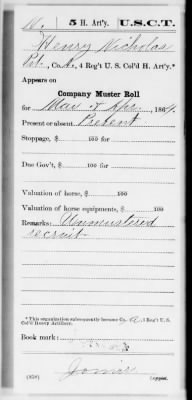 5 H. Art'y. U.S.C.T.
Henry Nicholas
Pvt., Co. , 4 Reg't U. S. Col'd H. Art'y.*
Appears on
Company Muster Roll
for Mar & Apr, 1864.
Present or absent Present
Stoppage, $ 100 for
Due Gov't, $ 100 for
Valuation of horse, $ 100
Valuation of horse equipments, $ 100
Remarks: Unmustered
recruit
* This organization subsequently became Co. , 5 Reg't U. S.
Col'd Heavy Artillery.
Book mark:
(858)
Copyist.